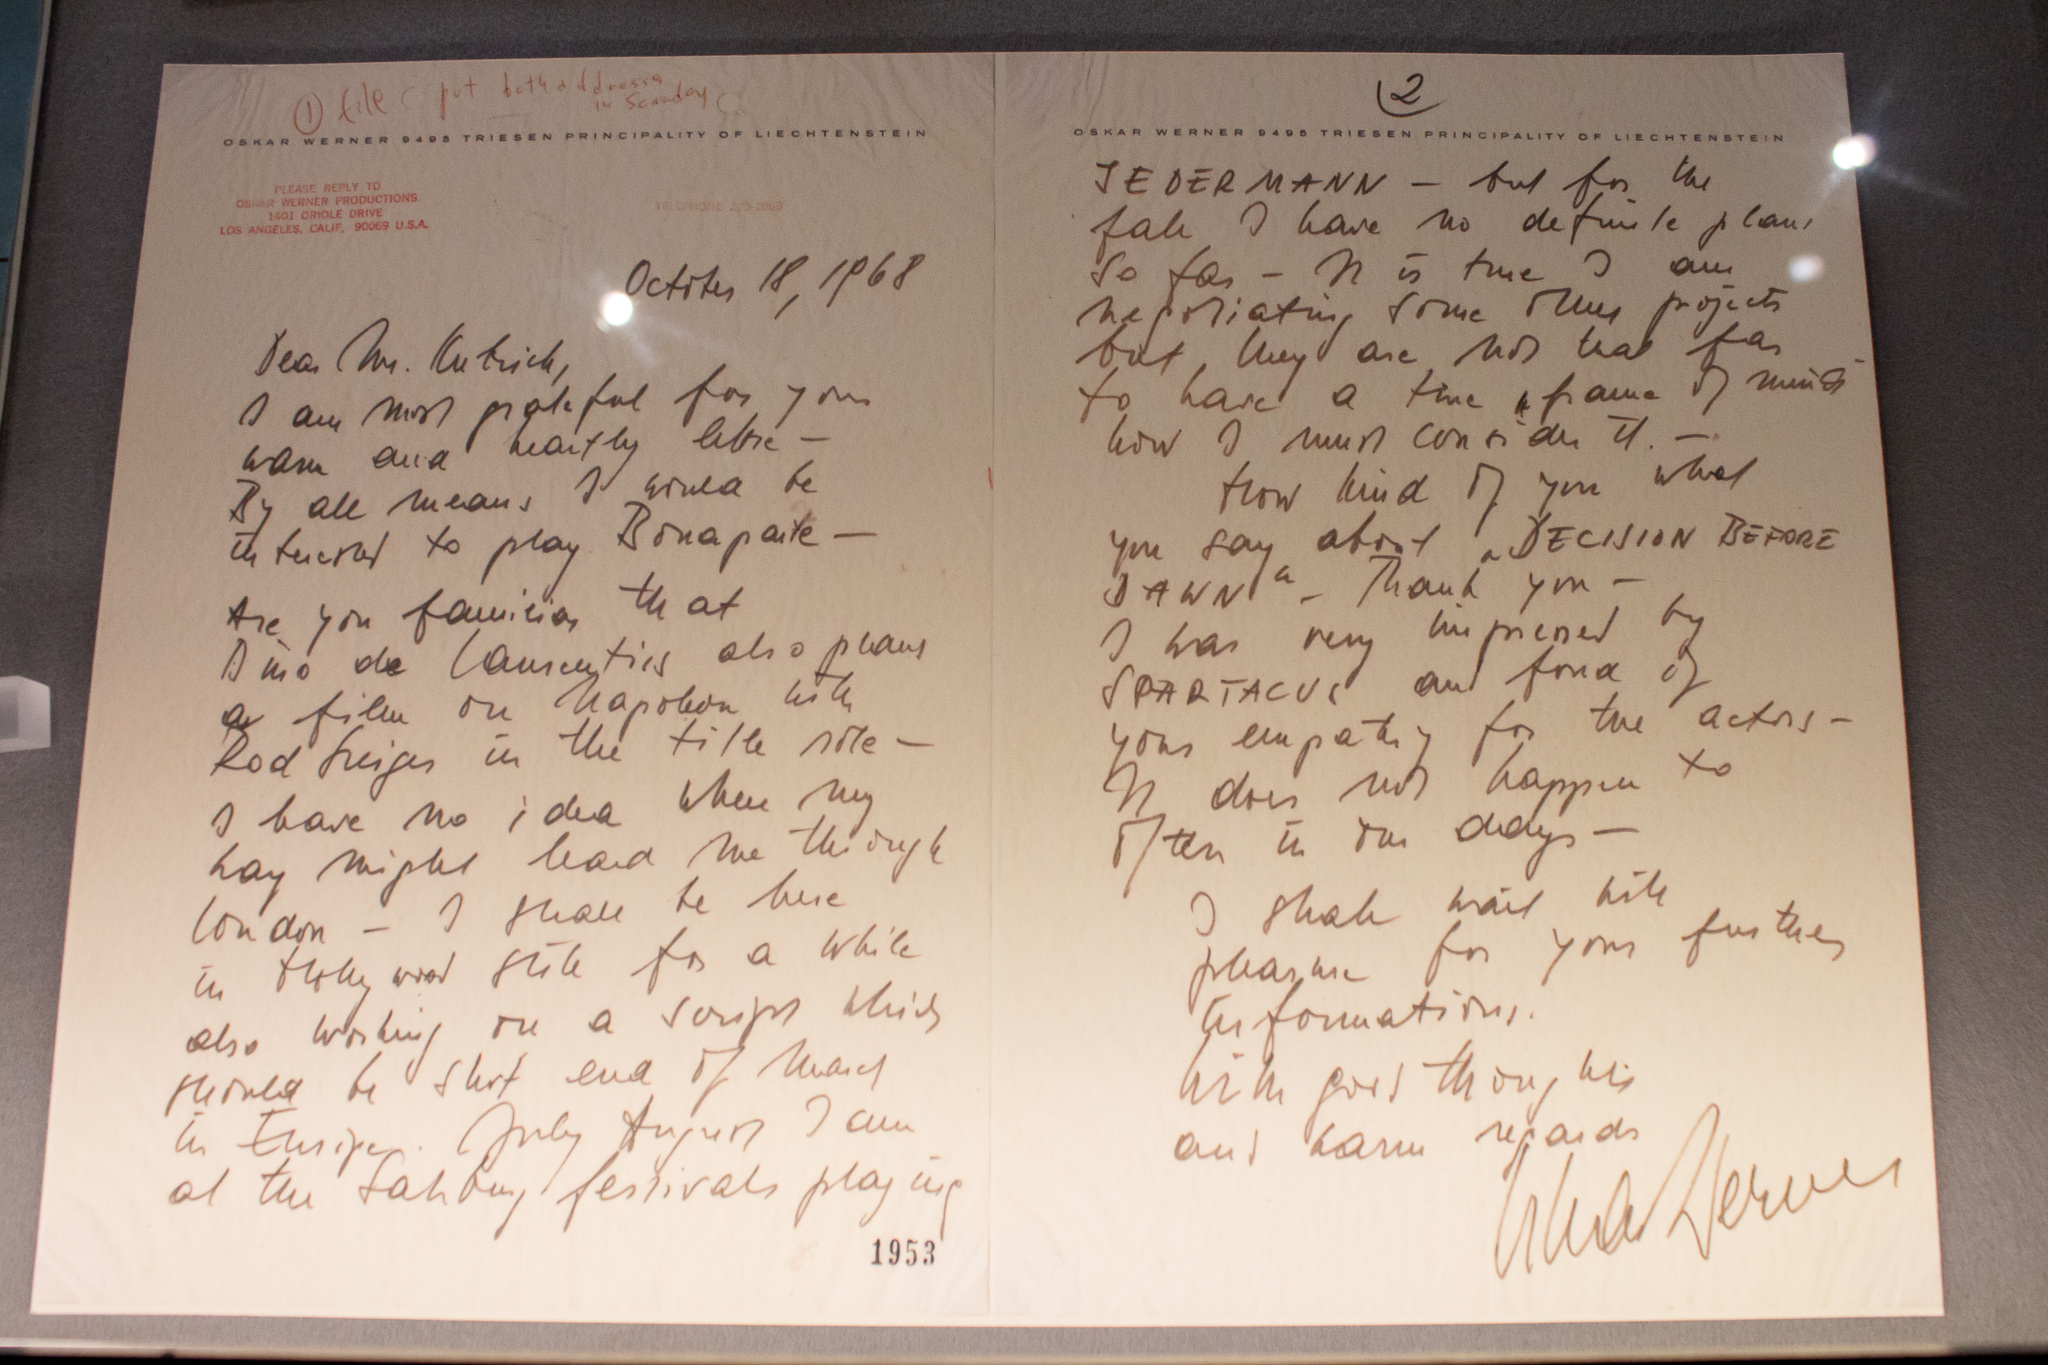 ① file put both addresses
in Scenday
OSKAR WERNER 9495 TRIESEN PRINCIPALITY OF LIECHTENSTEIN
PLEASE REPLY TO
OSKAR WERNER PRODUCTIONS
1401 ORIOLE DRIVE
LOS ANGELES, CALIF. 90069 U.S.A.
TELEPHONE 273-1969
October 18, 1968
Dear Mr. Kubrick,
I am most grateful for your
warm and heartly lettre —
By all means I would be
interested to play Bonaparte —
Are you familiar that
Dino de Laurentiis also plans
a film on Napoleon with
Rod Steiger in the title role —
I have no idea when my
way might lead me through
London — I shall be here
in Hollywood still for a while
also working on a script which
should be shot end of March
in Europe. July August I am
at the Salzburg festivals playing
1953
2
OSKAR WERNER 9495 TRIESEN PRINCIPALITY OF LIECHTENSTEIN
JEDERMANN — but for the
fall I have no definite plans
so far — It is true I am
negotiating some other projects
but they are not that far
to have a time „frame of mind"
how I must consider it. —
How kind of you what
you say about „DECISION BEFORE
DAWN" — Thank you —
I was very impressed by
SPARTACUS and fond of
your empathy for the actors —
It does not happen to
often in our days —
I shall wait with
pleasure for your further
informations.
With good thoughts
and warm regards
Oskar Werner